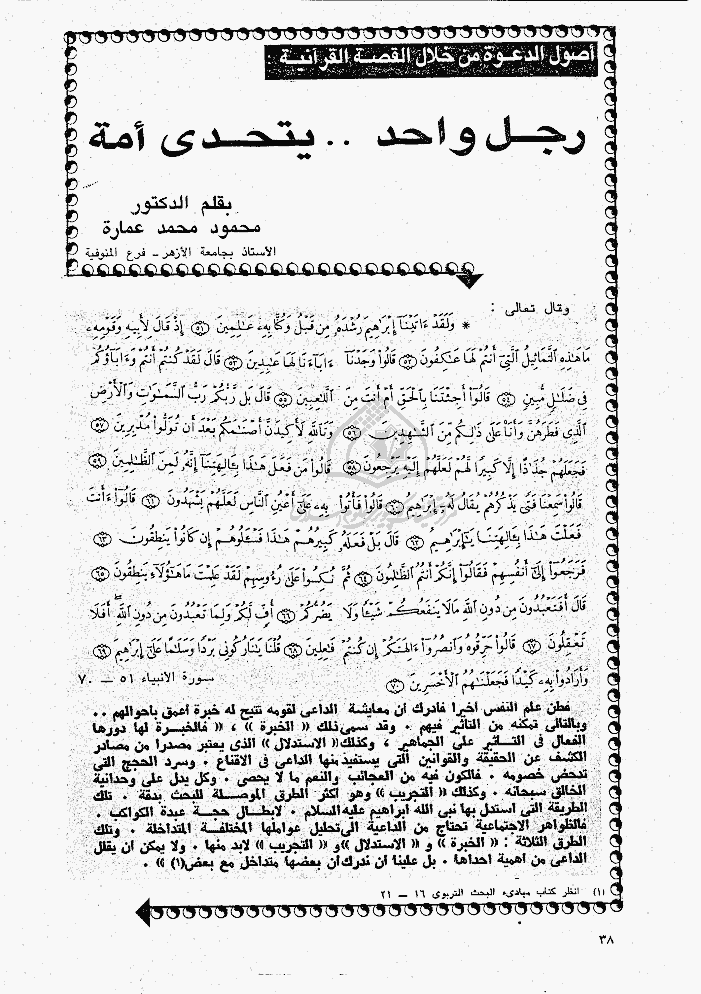 أصول الدعوة من خلال القصة القرآنية
رجل واحد .. يتحدى أمة
بقلم الدكتور
محمود محمد عمارة
الأستاذ بجامعة الأزهر - فرع المنوفية
وقال تعالى :
* وَلَقَدْ ءَاتَيْنَآ إِبْرَٰهِيمَ رُشْدَهُۥ مِن قَبْلُ وَكُنَّا بِهِۦ عَٰلِمِينَ ۝٥١ إِذْ قَالَ لِأَبِيهِ وَقَوْمِهِۦ
مَا هَٰذِهِ ٱلتَّمَاثِيلُ ٱلَّتِىٓ أَنتُمْ لَهَا عَٰكِفُونَ ۝٥٢ قَالُوا۟ وَجَدْنَآ ءَابَآءَنَا لَهَا عَٰبِدِينَ ۝٥٣ قَالَ لَقَدْ كُنتُمْ أَنتُمْ وَءَابَآؤُكُمْ
فِى ضَلَٰلٍ مُّبِينٍ ۝٥٤ قَالُوٓا۟ أَجِئْتَنَا بِٱلْحَقِّ أَمْ أَنتَ مِنَ ٱللَّٰعِبِينَ ۝٥٥ قَالَ بَل رَّبُّكُمْ رَبُّ ٱلسَّمَٰوَٰتِ وَٱلْأَرْضِ
ٱلَّذِى فَطَرَهُنَّ وَأَنَا۠ عَلَىٰ ذَٰلِكُم مِّنَ ٱلشَّٰهِدِينَ ۝٥٦ وَتَٱللَّهِ لَأَكِيدَنَّ أَصْنَٰمَكُم بَعْدَ أَن تُوَلُّوا۟ مُدْبِرِينَ ۝٥٧
فَجَعَلَهُمْ جُذَٰذًا إِلَّا كَبِيرًا لَّهُمْ لَعَلَّهُمْ إِلَيْهِ يَرْجِعُونَ ۝٥٨ قَالُوا۟ مَن فَعَلَ هَٰذَا بِـَٔالِهَتِنَآ إِنَّهُۥ لَمِنَ ٱلظَّٰلِمِينَ ۝٥٩
قَالُوا۟ سَمِعْنَا فَتًى يَذْكُرُهُمْ يُقَالُ لَهُۥٓ إِبْرَٰهِيمُ ۝٦٠ قَالُوا۟ فَأْتُوا۟ بِهِۦ عَلَىٰٓ أَعْيُنِ ٱلنَّاسِ لَعَلَّهُمْ يَشْهَدُونَ ۝٦١ قَالُوٓا۟ ءَأَنتَ
فَعَلْتَ هَٰذَا بِـَٔالِهَتِنَا يَٰٓإِبْرَٰهِيمُ ۝٦٢ قَالَ بَلْ فَعَلَهُۥ كَبِيرُهُمْ هَٰذَا فَسْـَٔلُوهُمْ إِن كَانُوا۟ يَنطِقُونَ ۝٦٣
فَرَجَعُوٓا۟ إِلَىٰٓ أَنفُسِهِمْ فَقَالُوٓا۟ إِنَّكُمْ أَنتُمُ ٱلظَّٰلِمُونَ ۝٦٤ ثُمَّ نُكِسُوا۟ عَلَىٰ رُءُوسِهِمْ لَقَدْ عَلِمْتَ مَا هَٰٓؤُلَآءِ يَنطِقُونَ ۝٦٥
قَالَ أَفَتَعْبُدُونَ مِن دُونِ ٱللَّهِ مَا لَا يَنفَعُكُمْ شَيْـًٔا وَلَا يَضُرُّكُمْ ۝٦٦ أُفٍّ لَّكُمْ وَلِمَا تَعْبُدُونَ مِن دُونِ ٱللَّهِ ۖ أَفَلَا
تَعْقِلُونَ ۝٦٧ قَالُوا۟ حَرِّقُوهُ وَٱنصُرُوٓا۟ ءَالِهَتَكُمْ إِن كُنتُمْ فَٰعِلِينَ ۝٦٨ قُلْنَا يَٰنَارُ كُونِى بَرْدًا وَسَلَٰمًا عَلَىٰٓ إِبْرَٰهِيمَ ۝٦٩
وَأَرَادُوا۟ بِهِۦ كَيْدًا فَجَعَلْنَٰهُمُ ٱلْأَخْسَرِينَ ۝٧٠ سورة الأنبياء ٥١ - ٧٠
فطن علم النفس أخيرا فأدرك أن معايشة الداعى لقومه تتيح له خبرة أعمق بأحوالهم ..
وبالتالى تمكنه من التأثير فيهم . وقد سمى ذلك « الخبرة » ، « فالخبرة لها دورها
الفعال فى التأثير على الجماهير ، وكذلك « الاستدلال » الذى يعتبر مصدرا من مصادر
الكشف عن الحقيقة والقوانين التى يستفيد منها الداعى فى الاقناع . وسرد الحجج التى
تدحض خصومه . فالكون فيه من العجائب والنعم ما لا يحصى . وكل يدل على وحدانية
الخالق سبحانه . وكذلك « التجريب » وهو أكثر الطرق الموصلة للبحث بدقة . تلك
الطريقة التى استدل بها نبى الله ابراهيم عليه السلام . لابطال حجة عبدة الكواكب .
فالظواهر الاجتماعية تحتاج من الداعية الى تحليل عواملها المختلفة المتداخلة . وتلك
الطرق الثلاثة : « الخبرة » و « الاستدلال » و « التجريب » لابد منها . ولا يمكن أن يقلل
الداعى من أهمية احداها . بل علينا أن ندرك أن بعضها متداخل مع بعض (١) » .
(١) انظر كتاب مبادىء البحث التربوى ١٦ - ٢١
٣٨